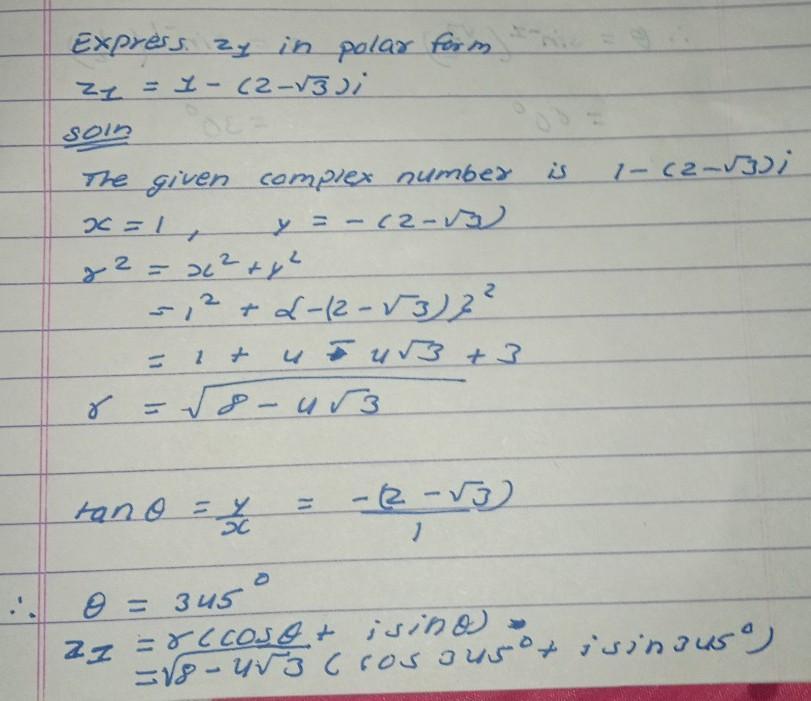 Express z₁ in polar form
z₁ = 1 - (2-√3)i
soln
The given complex number is 1-(2-√3)i
x = 1, y = -(2-√3)
r² = x² + y²
= 1² + {-(2-√3)}²
= 1 + 4 - 4√3 + 3
r = √8 - 4√3
tanθ = y/x = -(2-√3)/1
∴ θ = 345°
z₁ = r(cosθ + isinθ)
= √8-4√3 (cos 345° + isin345°)